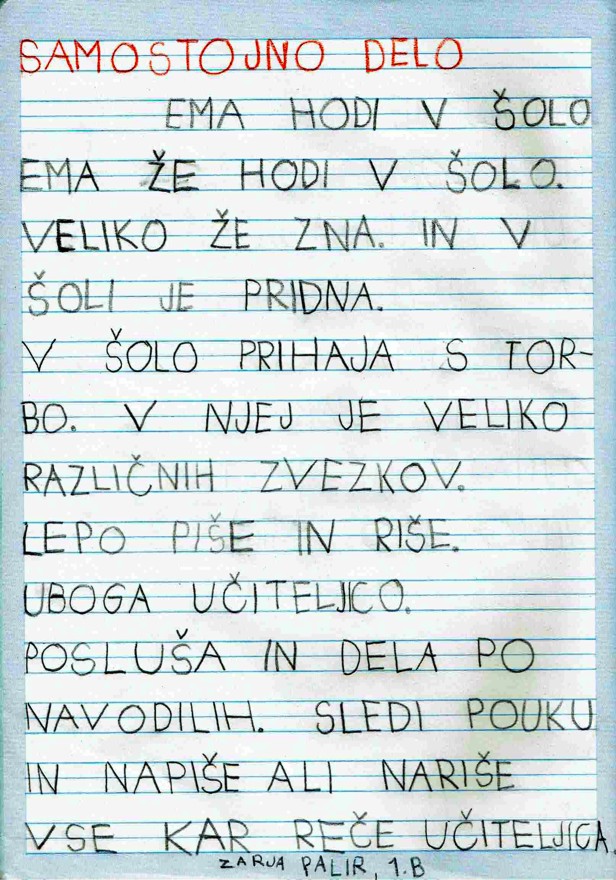 SAMOSTOJNO DELO
EMA HODI V ŠOLO
EMA ŽE HODI V ŠOLO.
VELIKO ŽE ZNA. IN V
ŠOLI JE PRIDNA.
V ŠOLO PRIHAJA S TOR-
BO. V NJEJ JE VELIKO
RAZLIČNIH ZVEZKOV.
LEPO PIŠE IN RIŠE.
UBOGA UČITELJICO.
POSLUŠA IN DELA PO
NAVODILIH. SLEDI POUKU
IN NAPIŠE ALI NARIŠE
VSE KAR REČE UČITELJICA.
ZARJA PALIR, 1.B